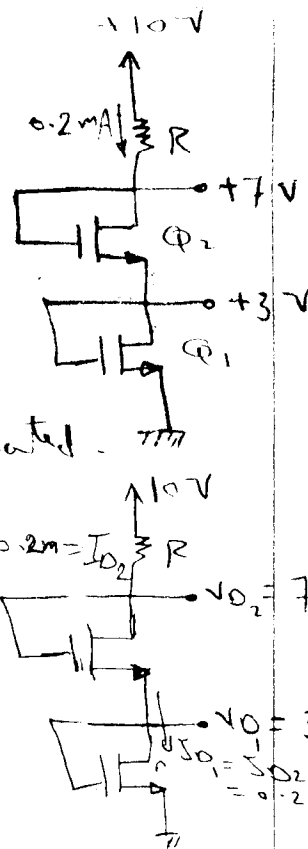 +10 V
0.2mA
R
+7 V
Q2
+3 V
Q1
10 V
0.2m = ID2
R
VD2 = 7
VD1 = 3
ID1 = ID2
= 0.2